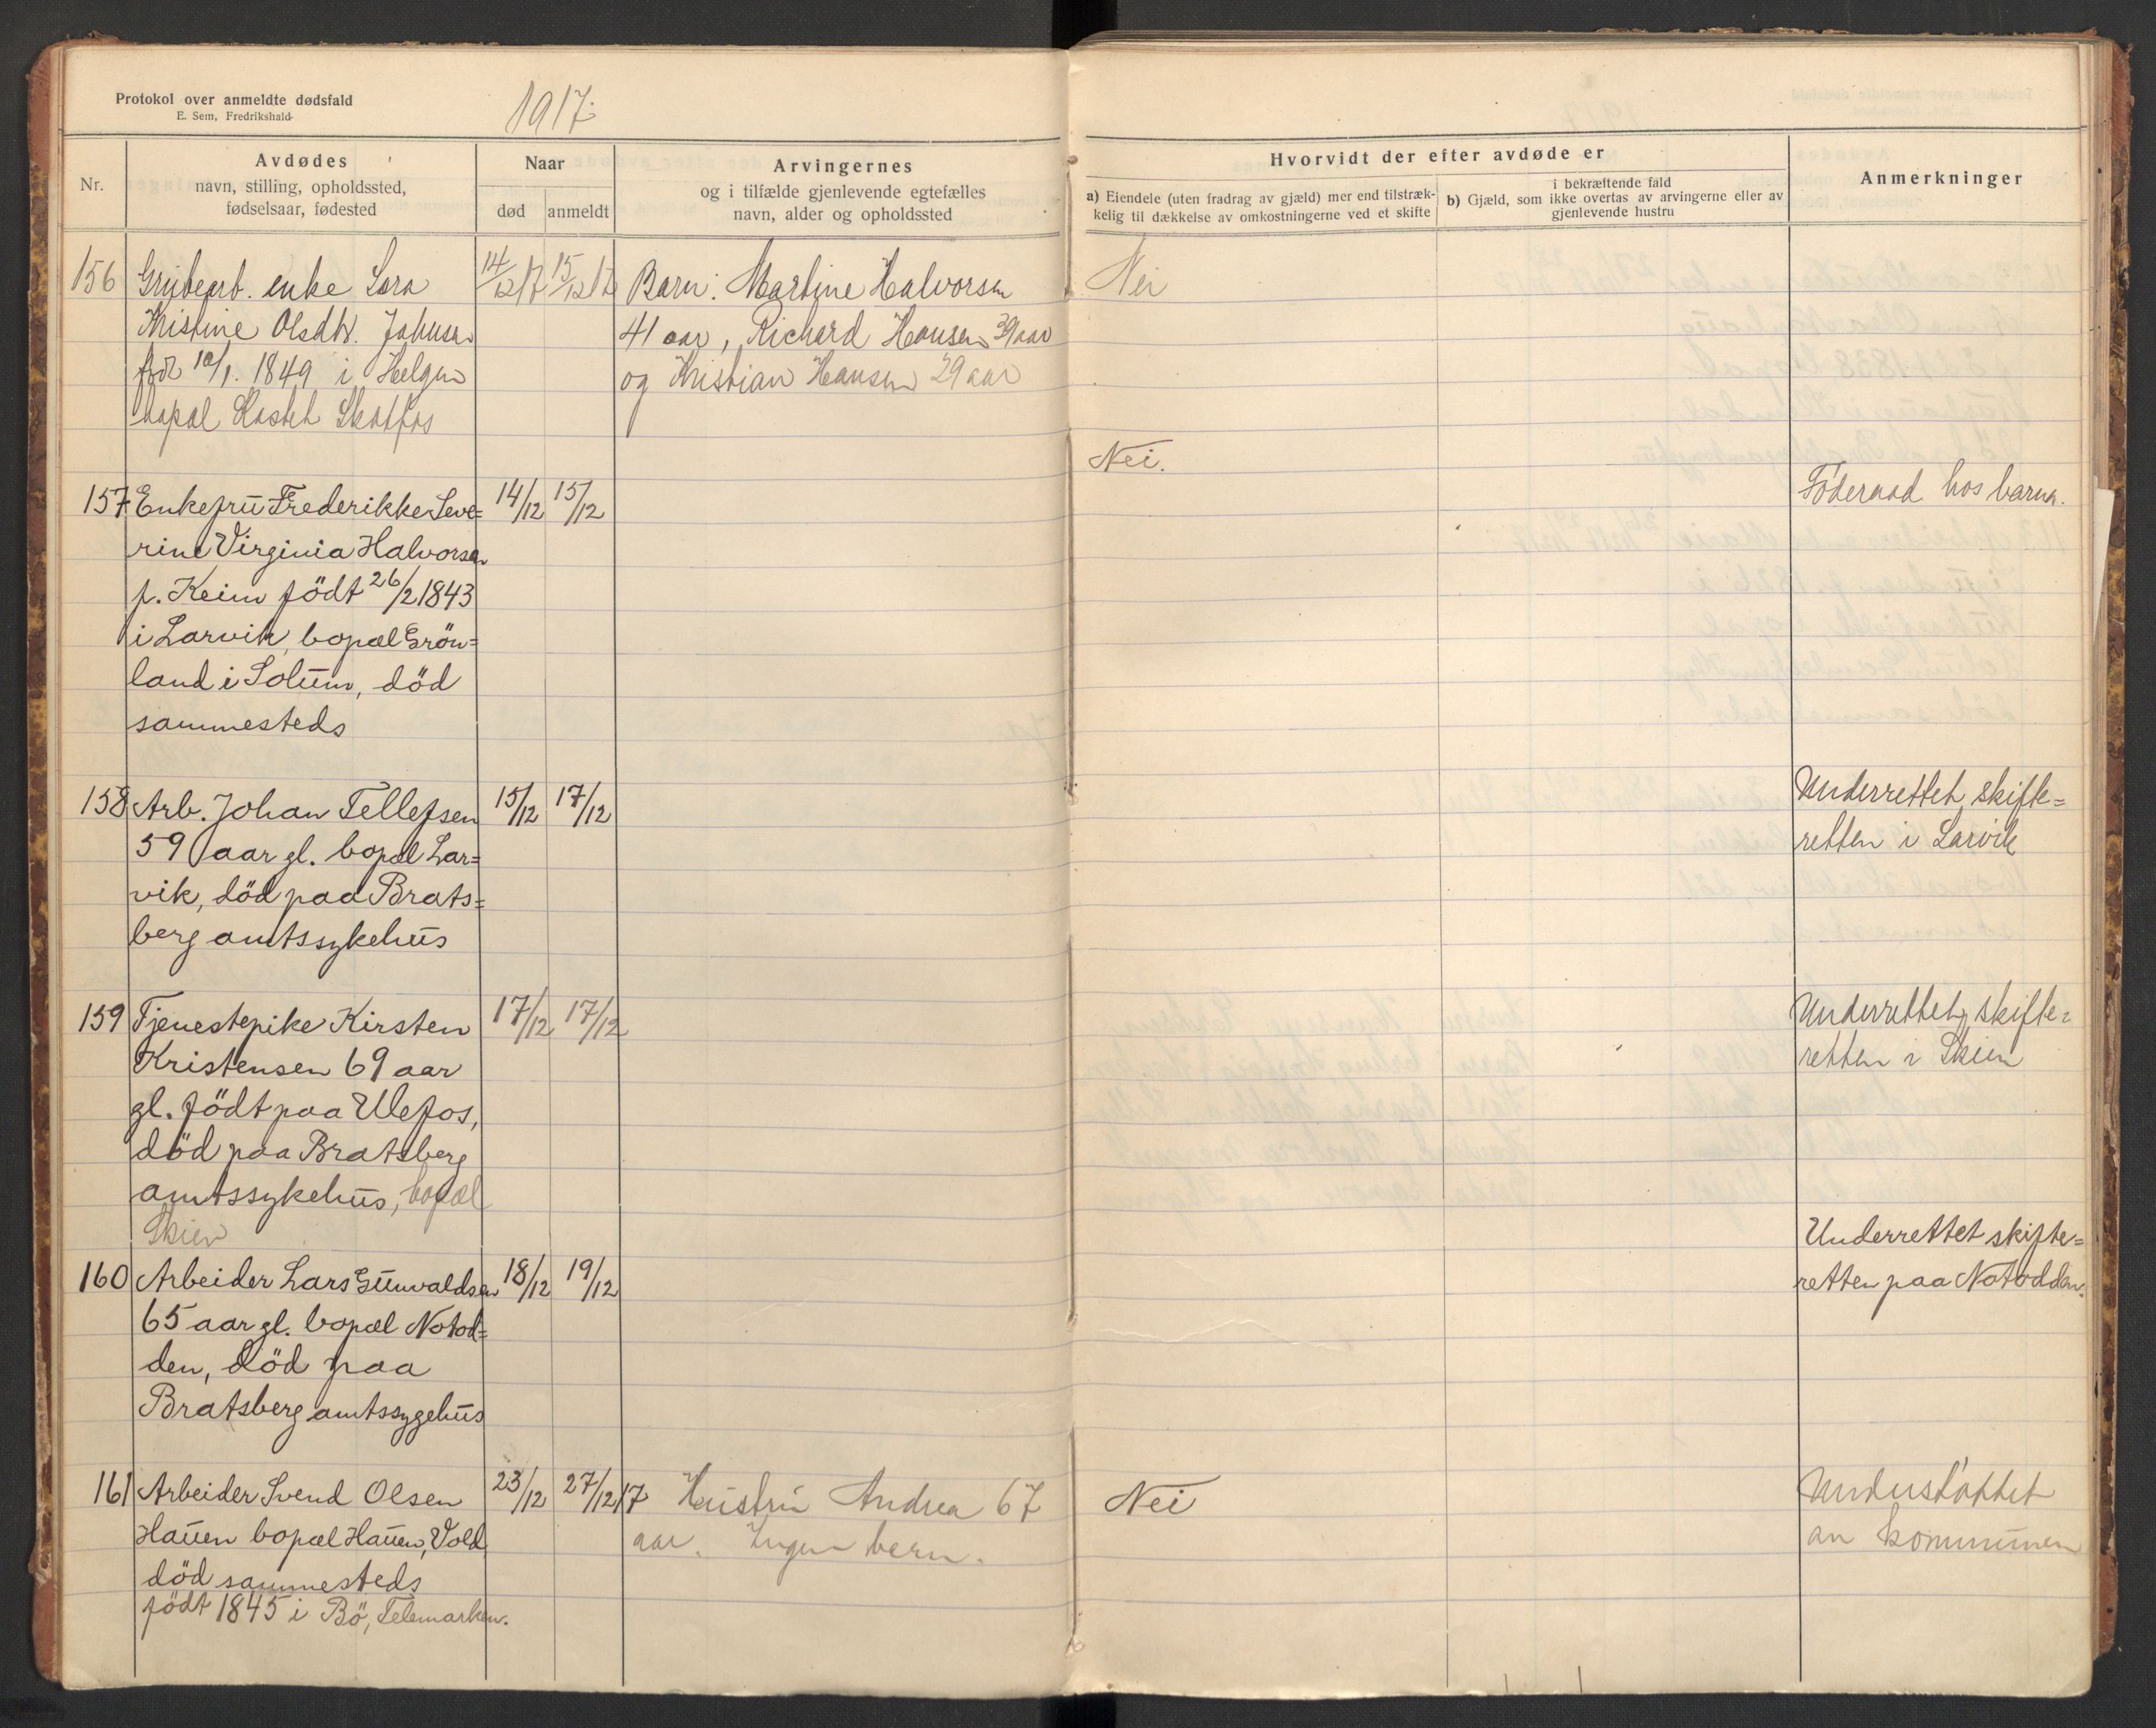 Protokol over anmeldte dødsfald
E. Sem, Fredrikshald
1917.
Nr.
Avdødes
navn, stilling, opholdssted,
fødselsaar, fødested
Naar
død
anmeldt
Arvingernes
og i tilfælde gjenlevende egtefælles
navn, alder og opholdssted
Hvorvidt der efter avdøde er
a) Eiendele (uten fradrag av gjæld) mer end tilstræk-
kelig til dækkelse av omkostningerne ved et skifte
i bekræftende fald
b) Gjæld, som ikke overtas av arvingerne eller av
gjenlevende hustru
Anmerkninger
156 Grubearb. enke Sara 14/12 17 15/12 17 Barn: Martine Halvorsen Nei
Kristine Olsdtr. Johnsen 41 aar, Richard Hansen 39 aar
född 10/1. 1849 i Helgen og Kristian Hansen 29 aar
bopæl Skotfos
Nei.
157 Enkefru Frederikke Seve= 14/12 15/12 Föderaad hos barna.
rine Virginia Halvorsen
f. Keim födt 26/2 1843
i Larvik, bopæl Grön=
land i Solum, död
sammesteds
158 Arb. Johan Tellefsen 15/12 17/12 Underrettet skifte=
59 aar gl. bopæl Lar= retten i Larvik
vik, död paa Brats=
berg amtssykehus
159 Tjenestepike Kirsten 17/12 17/12 Underrettet skifte=
Kristensen 69 aar retten i Skien
gl. födt paa Ulefos,
död paa Bratsberg
amtssykehus, bopæl
Skien
160 Arbeider Lars Gunvaldsen 18/12 19/12 Underrettet skifte=
65 aar gl. bopæl Notod= retten paa Notodden.
den, död paa
Bratsberg amtssygehus
161 Arbeider Svend Olsen 23/12 27/12 17 Hustru Andrea 67 Nei Understöttet
Hauen bopæl Hauen, Vold aar. Ingen barn. av kommunen
död sammesteds
födt 1845 i Bö, Telemarken.